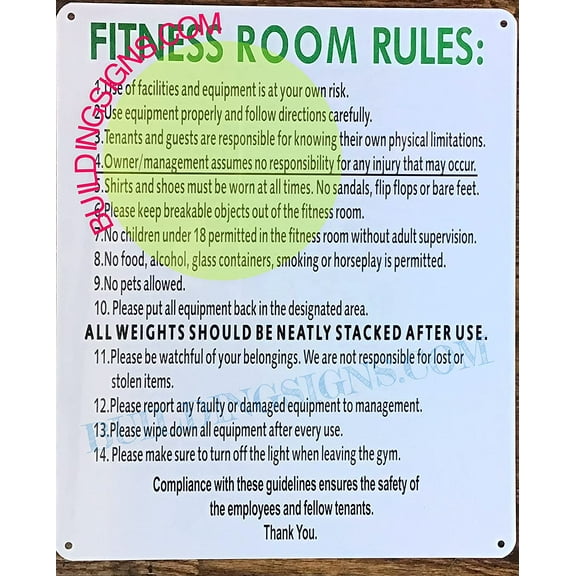 FITNESS ROOM RULES:
1.Use of facilities and equipment is at your own risk.
2.Use equipment properly and follow directions carefully.
3.Tenants and guests are responsible for knowing their own physical limitations.
4.Owner/management assumes no responsibility for any injury that may occur.
5.Shirts and shoes must be worn at all times. No sandals, flip flops or bare feet.
6.Please keep breakable objects out of the fitness room.
7.No children under 18 permitted in the fitness room without adult supervision.
8.No food, alcohol, glass containers, smoking or horseplay is permitted.
9.No pets allowed.
10. Please put all equipment back in the designated area.
ALL WEIGHTS SHOULD BE NEATLY STACKED AFTER USE.
11.Please be watchful of your belongings. We are not responsible for lost or
stolen items.
12.Please report any faulty or damaged equipment to management.
13.Please wipe down all equipment after every use.
14. Please make sure to turn off the light when leaving the gym.
Compliance with these guidelines ensures the safety of
the employees and fellow tenants.
Thank You.
BUILDINGSIGNS.COM
BUILDINGSIGNS.COM